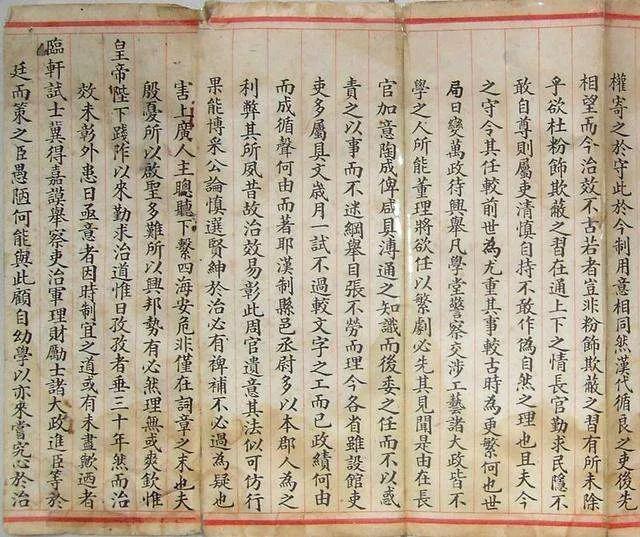 權寄之於守此於今制用意相同然漢代循良之吏後先
相望而今治效不古若者豈非粉飾欺蔽之習有所未除
乎欲杜粉飾欺蔽之習在通上下之情長官勤求民隱不
敢自尊則屬吏清慎自持不敢作偽自然之理也且夫今
之守令其任較前世為尤重其事較古時為更繁何也世
局日變萬政待興舉凡學堂警察交涉工藝諸大政皆不
學之人所能董理將欲任以繁劇必先其見聞是由在長
官加意陶成俾咸具溥通之知識而後委之任而不以惑
責之以事而不迷綱舉目張不勞而理今各省雖設館吏
吏多屬具文歲月一試不過較文字之工而已政績何由
而成循聲何由而著耶漢制縣邑丞尉多以本郡人為之
利弊其所夙昔故治效易彰此周官遺意其法似可仿行
果能博采公論慎選賢紳於治必有裨補不必過為疑也
害上廣人主聰聽下繫四海安危非僅在詞章之末也夫
殷憂所以啟聖多難所以興邦勢有必然理無或爽欽惟
皇帝陛下踐阼以來勤求治道惟日孜孜者垂三十年然而治
效未彰外患日亟意者因時制宜之道或有未盡歟邇者
臨軒試士冀得嘉謨舉察吏治軍理財勵士諸大政進臣等於
廷而策之臣愚陋何能與此顧自幼學以亦來嘗究心於治